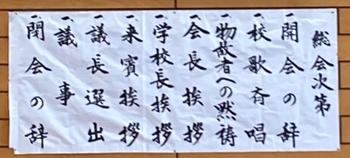 総会次第
一開会の辞
一校歌斉唱
一物故者への黙祷
一会長挨拶
一学校長挨拶
一来賓挨拶
一議長選出
一議事
一閉会の辞